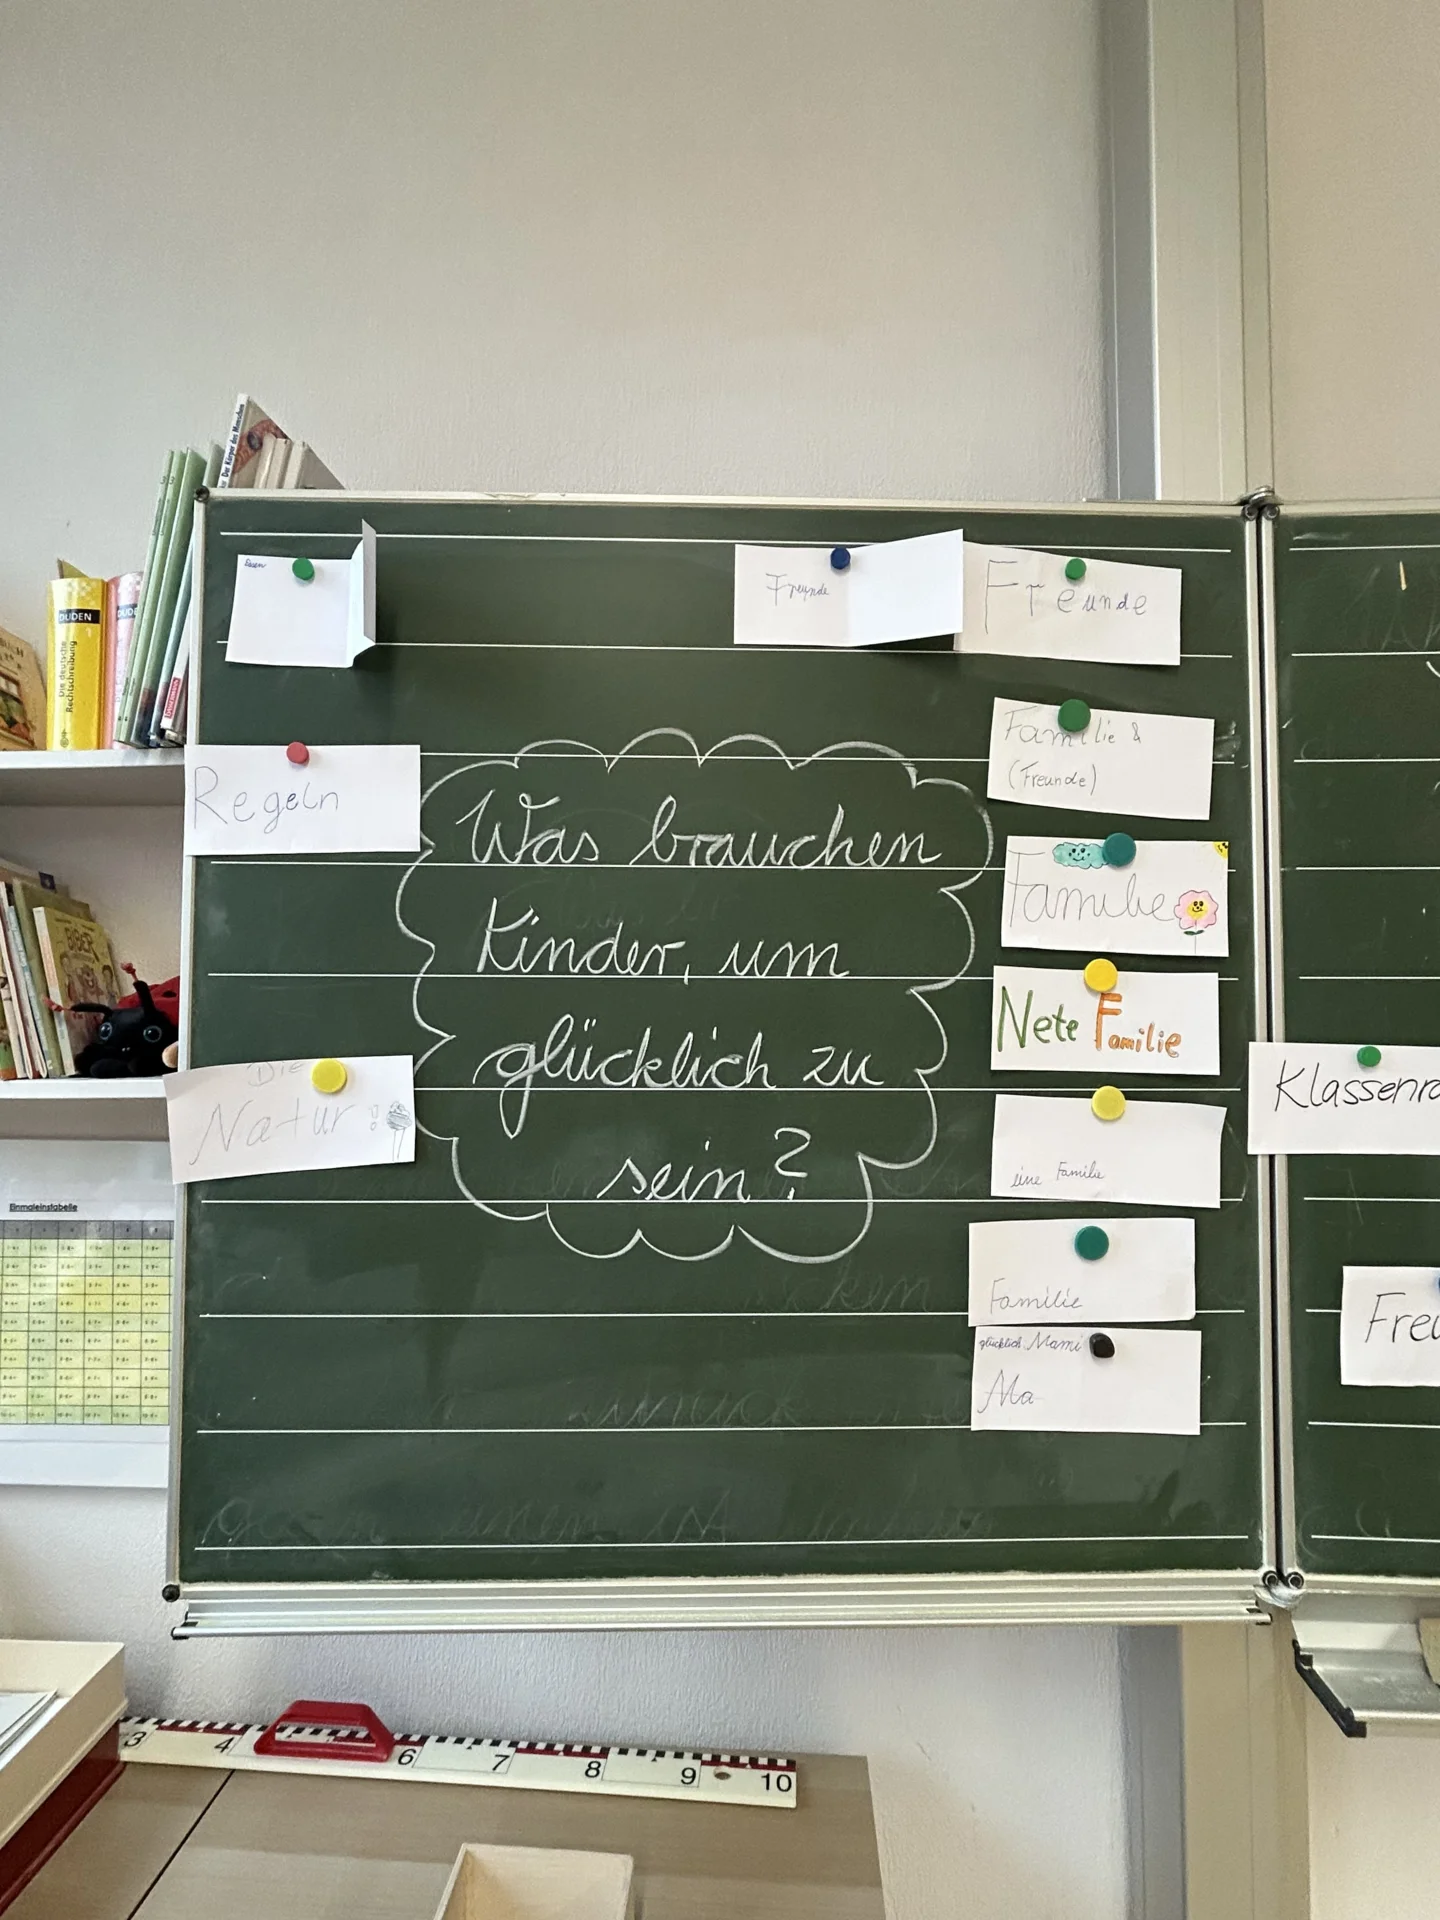 Der Körper des Menschen
DUDEN
1
Die deutsche
Rechtschreibung
DUDEN
BIBER
Essen
Freunde
Freunde
Regeln
Familie &
(Freunde)
Was brauchen
Kinder, um
glücklich zu
sein?
Familie
Nete Familie
Die
Natur!
Klassenra
eine Familie
Familie
glücklich Mami
Ma
Freu
Einmaleinstabelle
3 4 6 7 8 9 10